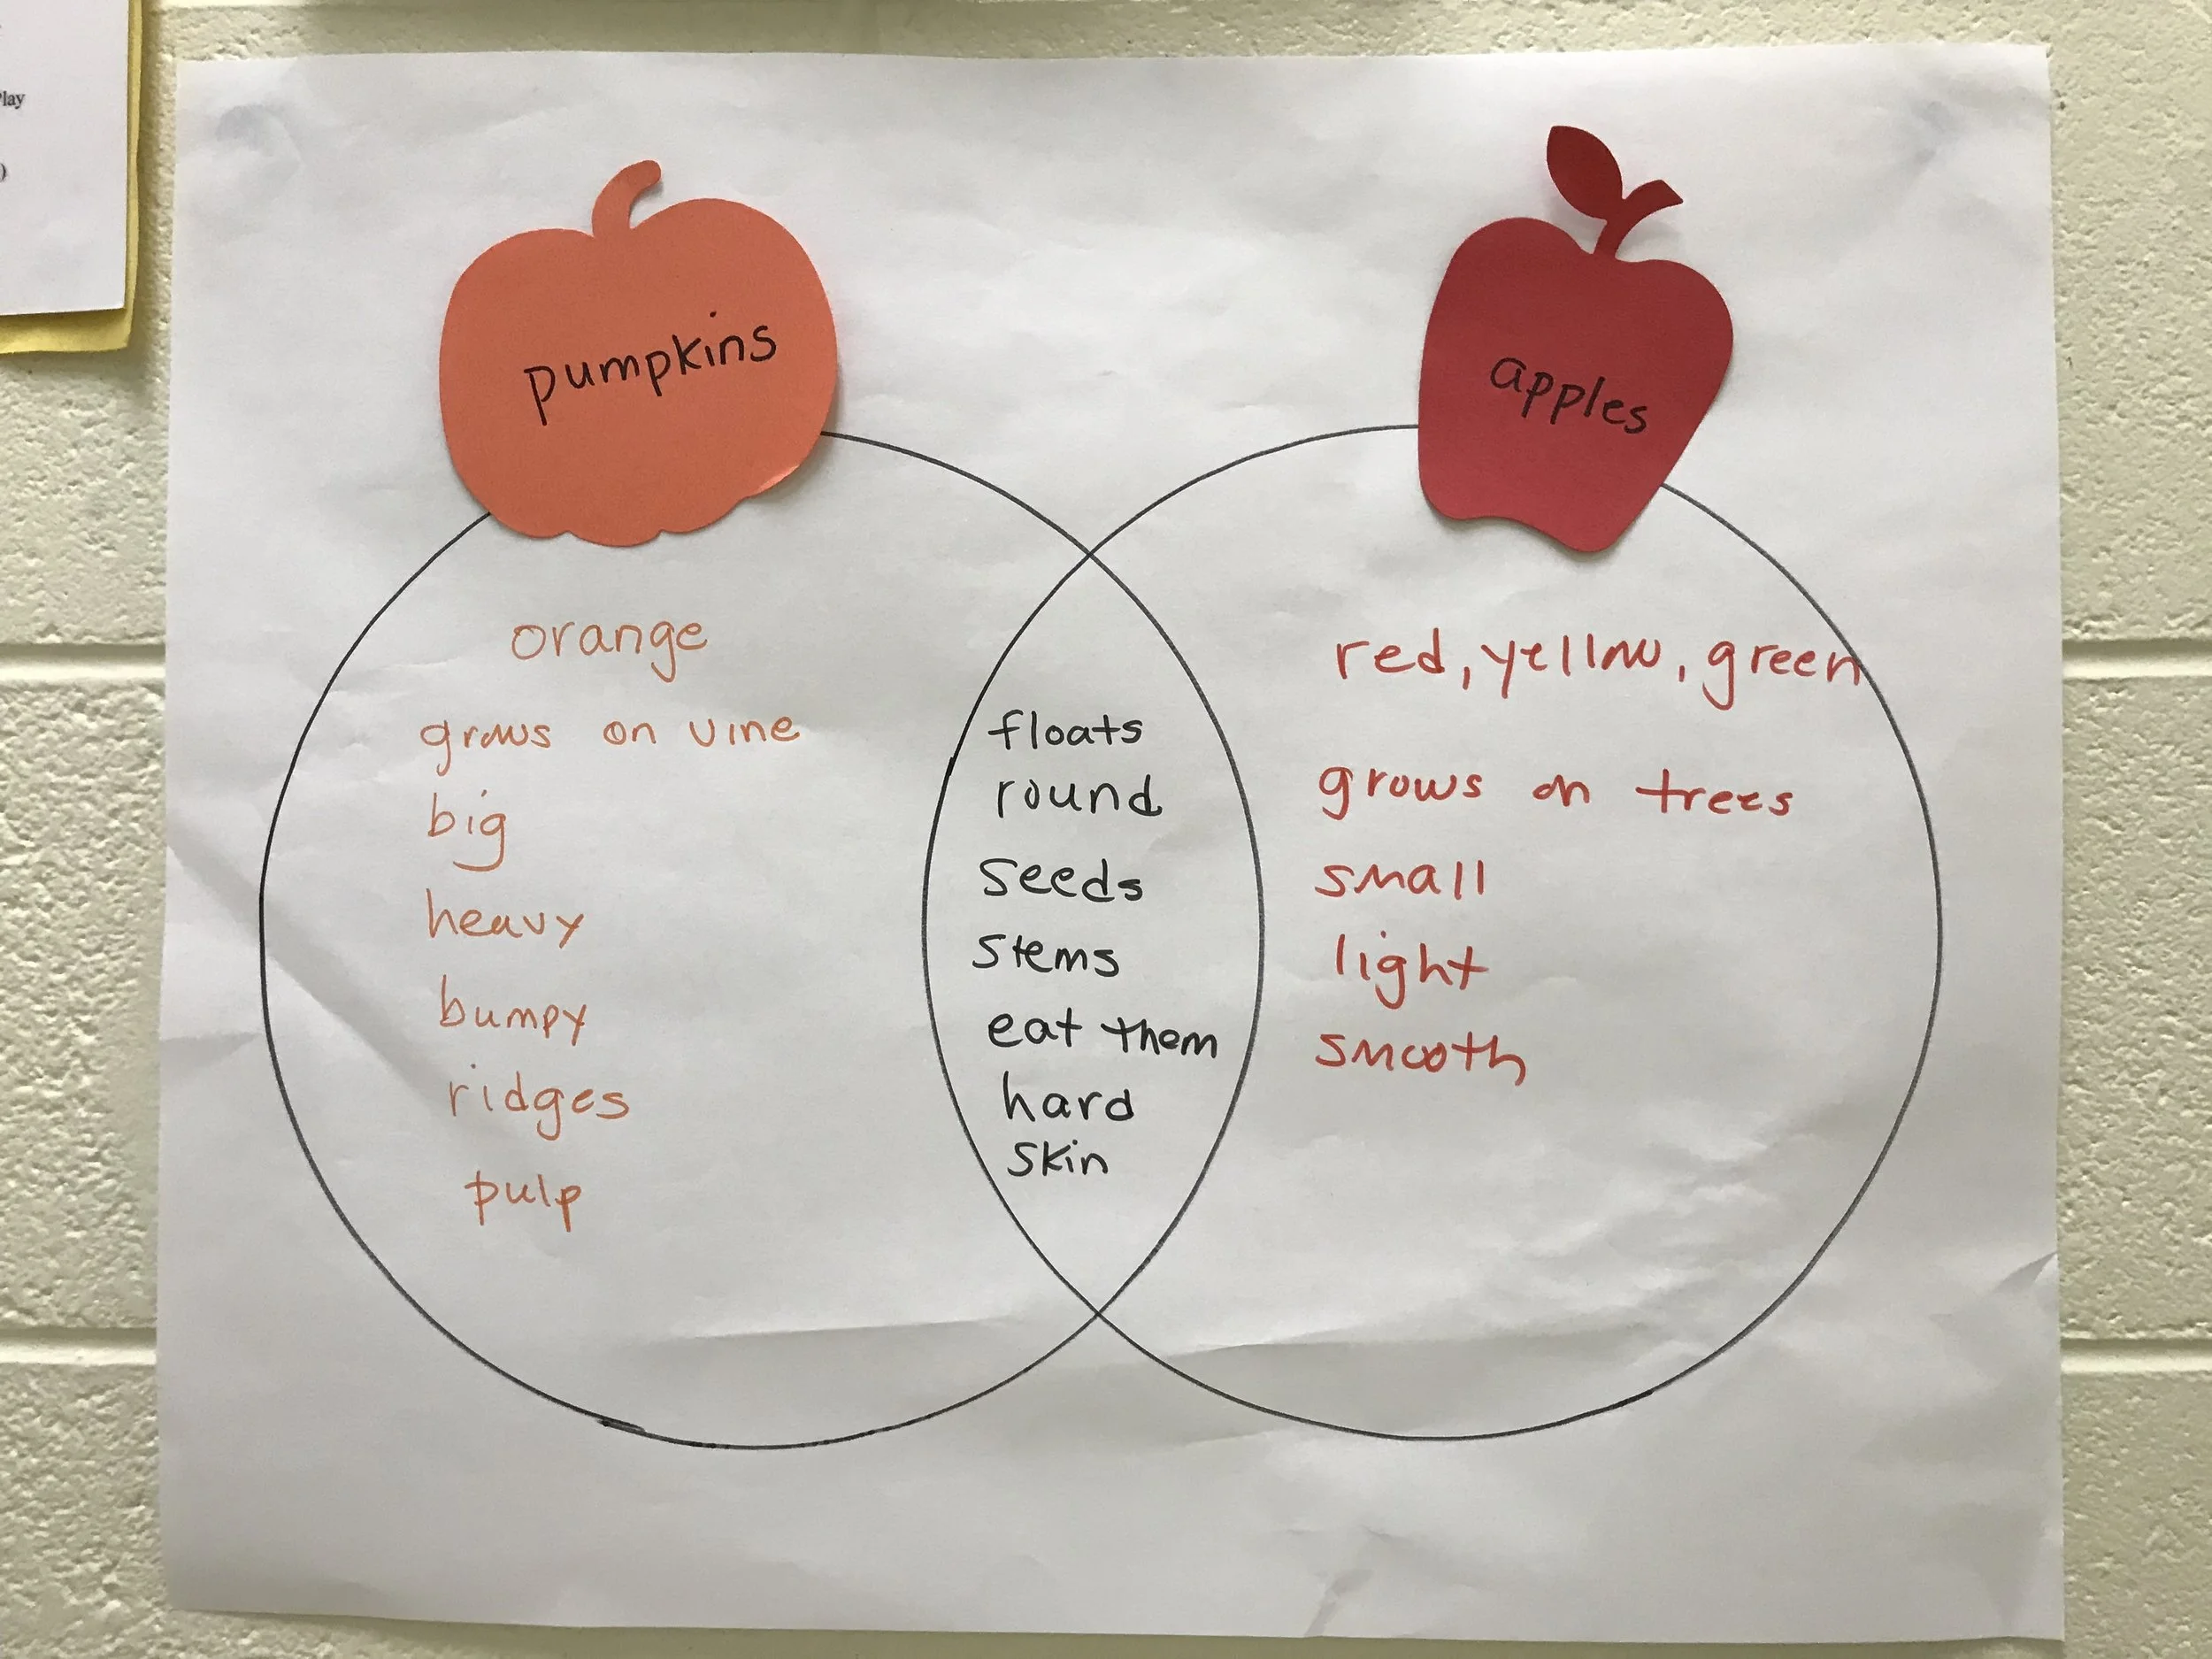 Play
)
pumpkins
apples
orange
grows on vine
big
heavy
bumpy
ridges
pulp
floats
round
seeds
stems
eat them
hard
skin
red, yellow, green
grows on trees
small
light
smooth